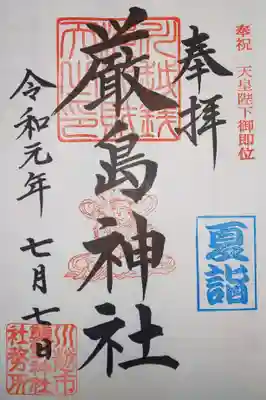 奉祝 天皇陛下御即位
奉拝
夏詣
厳島神社
令和元年 七月七日
川崎市
社務所